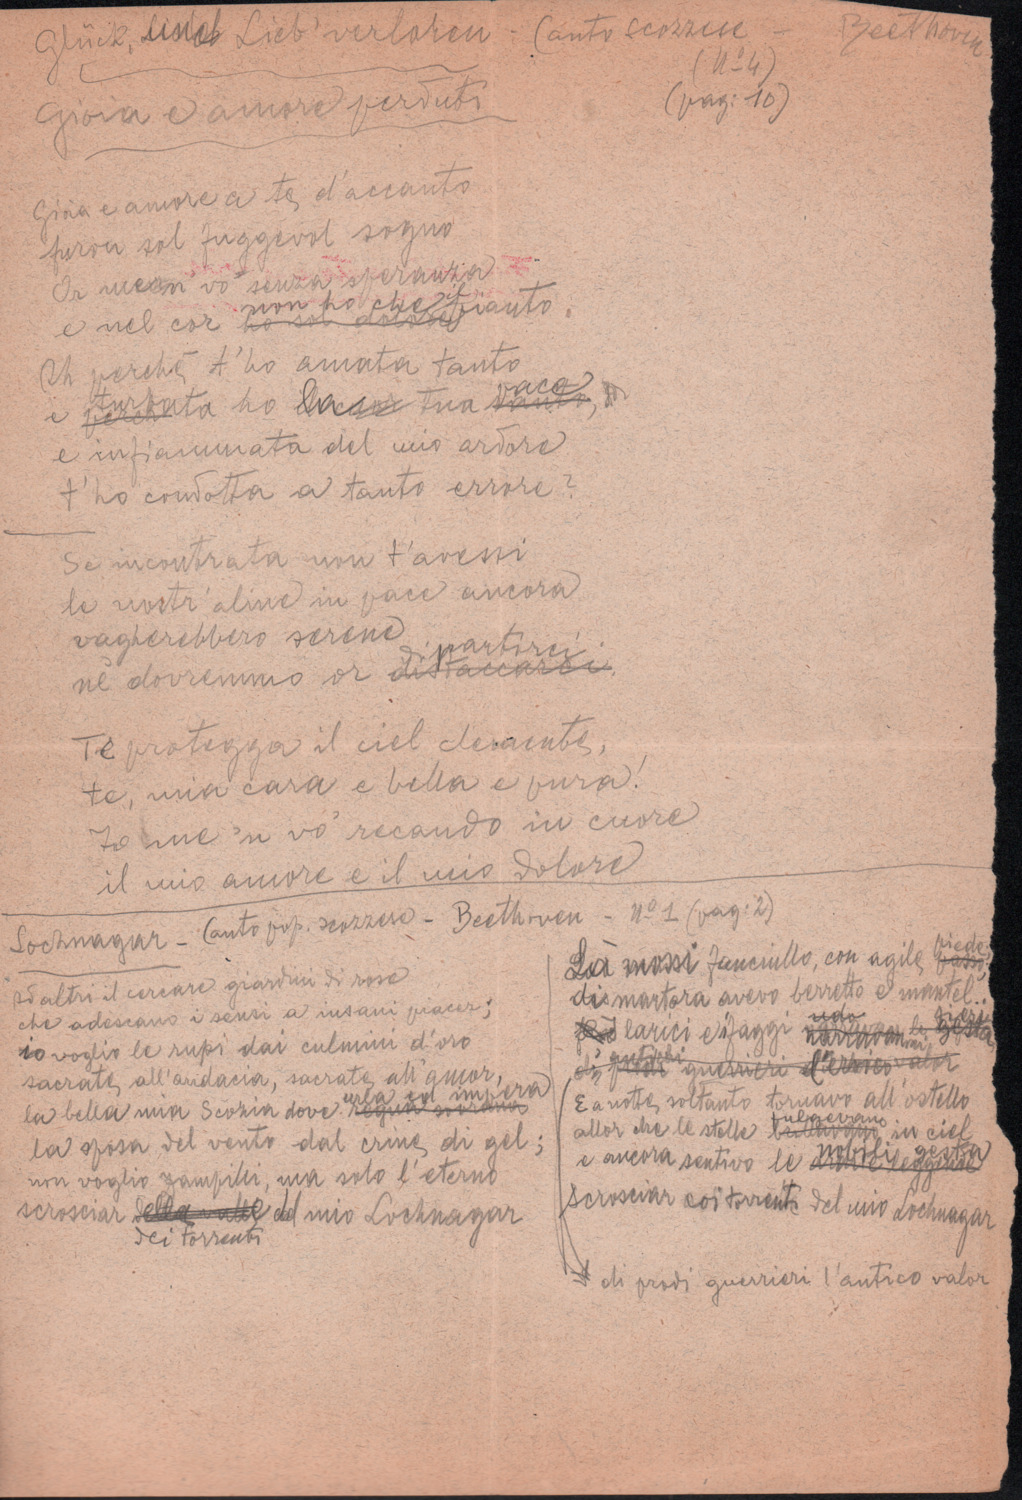 Glück, und Lieb' verloren - Canto Scozzese - Beethoven
(Nº 4)
(pag: 10)
Gioia e amore perduti
Gioia e amore a te d'accanto
furon sol fuggevol sogno
Or me n' vo' senza speranza
non ho che il pianto.
e nel cor ho sol dolore
Oh perché t'ho amata tanto
e turbata ho la tua pace,
e infiammata del mio ardore
t'ho condotta a tanto errore?
Se incontrata non t'avessi
le nostr'alme in pace ancora
vagherebbero serene
dipartirci.
nè dovremmo or distaccarci.
Te protegga il ciel clemente,
te, mia cara e bella e pura!
Io me 'n vo' recando in cuore
il mio amore e il mio dolore
Lochnagar - Canto pop. scozzese - Beethoven - Nº 1 (pag: 2)
ad altri il cercare giardini di rose
che adescano i sensi a insani piacer;
io voglio le rupi dai culmini d'oro
sacrate all'audacia, sacrate all'amor,
urla ed impera
la bella mia Scozia dove regna sovrana
la sposa del vento dal crine di gel;
non voglio zampilli, ma solo l'eterno
scrosciar della valle del mio Lochnagar
dei torrenti
Là mossi fanciullo, con agile piede
passo,
di martora avevo berretto e mantel..
fra larici e faggi udo le gesta
narravan
di prodi guerrieri l'eroico valor
antichi
E a notte soltanto tornavo all'ostello
allor che le stelle fulgevano in ciel
e ancora sentivo le nobili gesta
leggende
scrosciar coi torrenti del mio Lochnagar
di prodi guerrieri l'antico valor